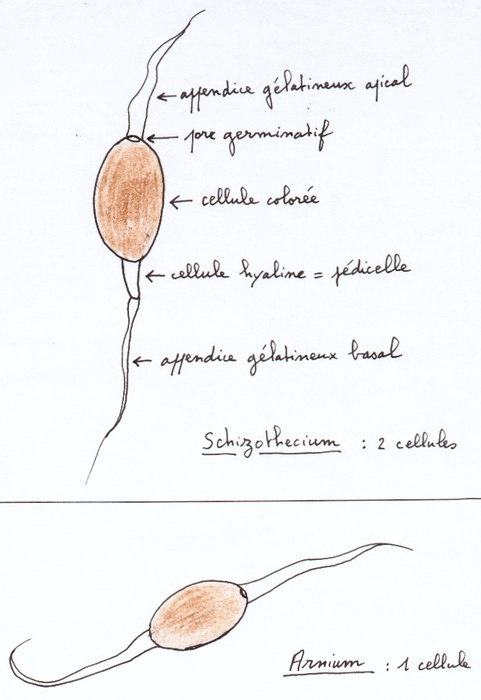 ← appendice gélatineux apical
← pore germinatif
← cellule colorée
← cellule hyaline = pédicelle
← appendice gélatineux basal
Schizothecium : 2 cellules
Arnium : 1 cellule